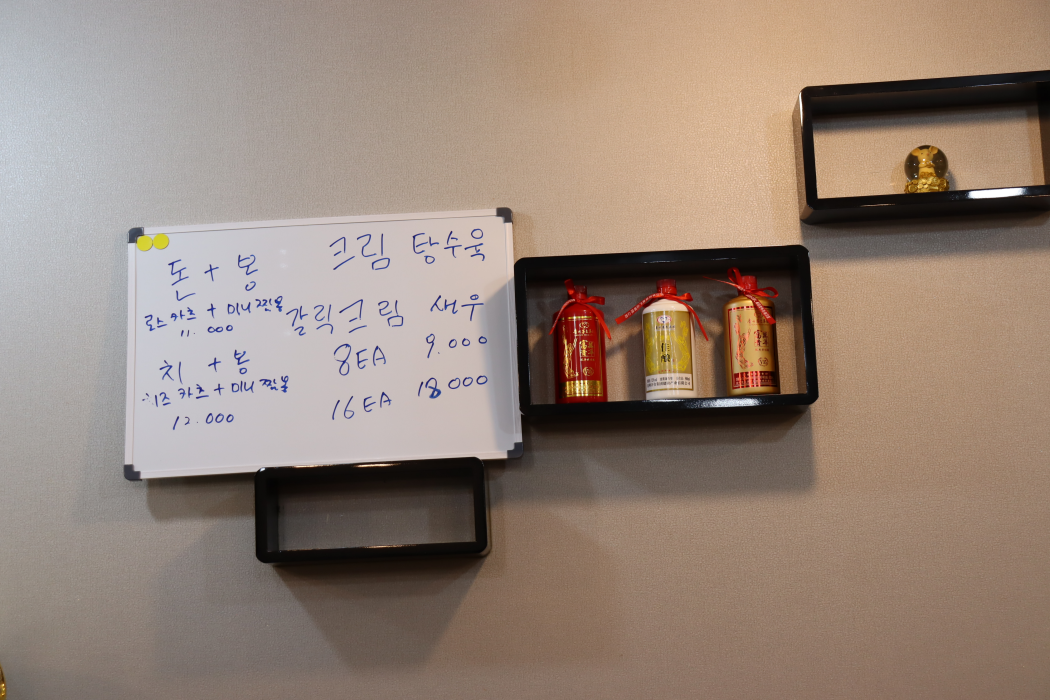 돈 + 봉
로스카츠 + 미니짬뽕
11.000
치 + 봉
치즈 카츠 + 미니 짬뽕
12.000
크림 탕수육
갈릭크림 새우
8EA 9.000
16EA 18.000